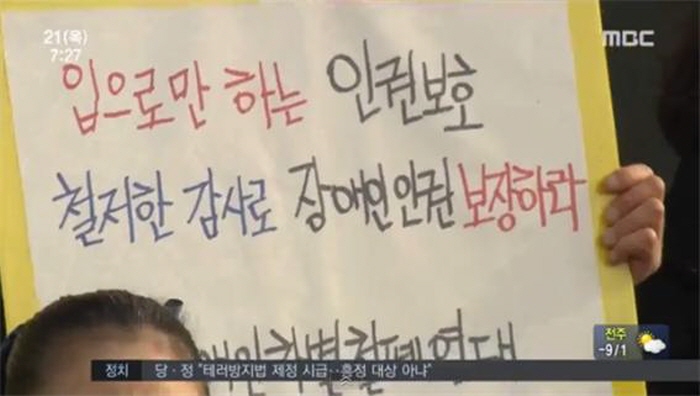 21(목)
7:27
MBC
입으로만 하는 인권보호
철저한 감사로 장애인인권 보장하라
애인차별철폐연대
전주
-9/1
정치 당·정 "테러방지법 제정 시급…흥정 대상 아냐"